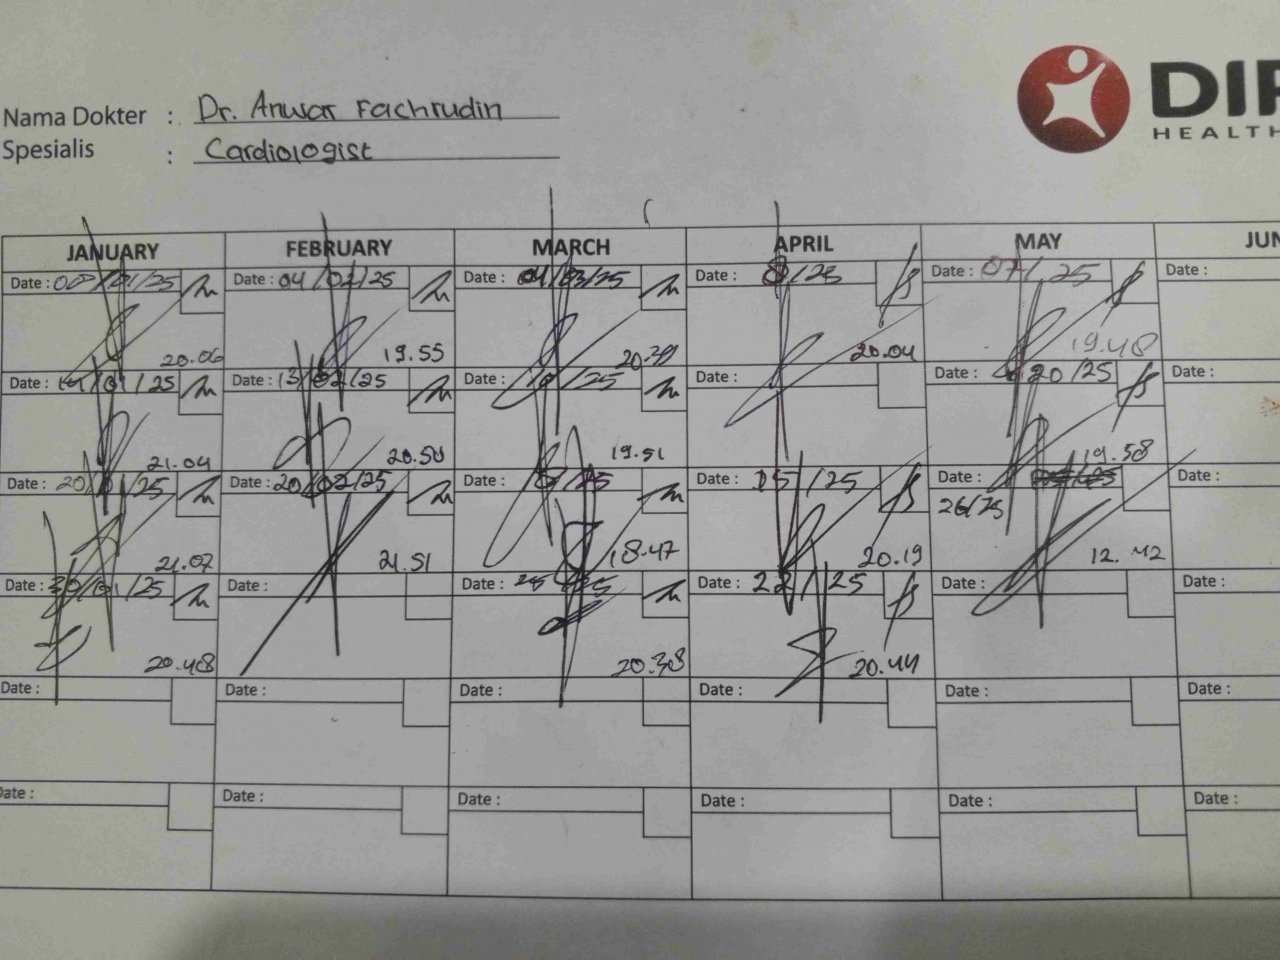 Nama Dokter : Dr. Anwar Fachrudin
Spesialis : Cardiologist
DIP
HEALTH
JANUARY FEBRUARY MARCH APRIL MAY JUN
Date : /01/25 Date : 04/02/25 Date : 04/03/25 Date : 8/25 Date : 07/25 Date :
20.06 19.55 20.39 20.04 19.48
Date : /01/25 Date : 13/02/25 Date : /25 Date : Date : 20/25 Date :
21.04 20.50 19.51 19.58
Date : 20/ /25 Date : 20/02/25 Date : /25 Date : 15/25 Date : Date :
26/25
21.07 21.51 18.47 20.19 12.42
Date : 30/01/25 Date : Date : 25/25 Date : 22/25 Date : Date :
20.48 20.38 20.44
Date : Date : Date : Date : Date : Date :
Date : Date : Date : Date : Date : Date :